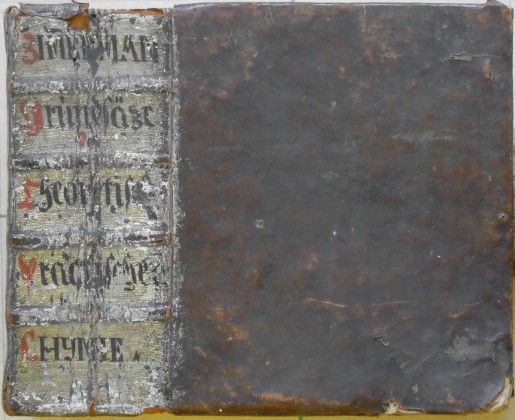 SIMERMAN
Grundsäze
Theoretisch
Practischer
CHYMIE.